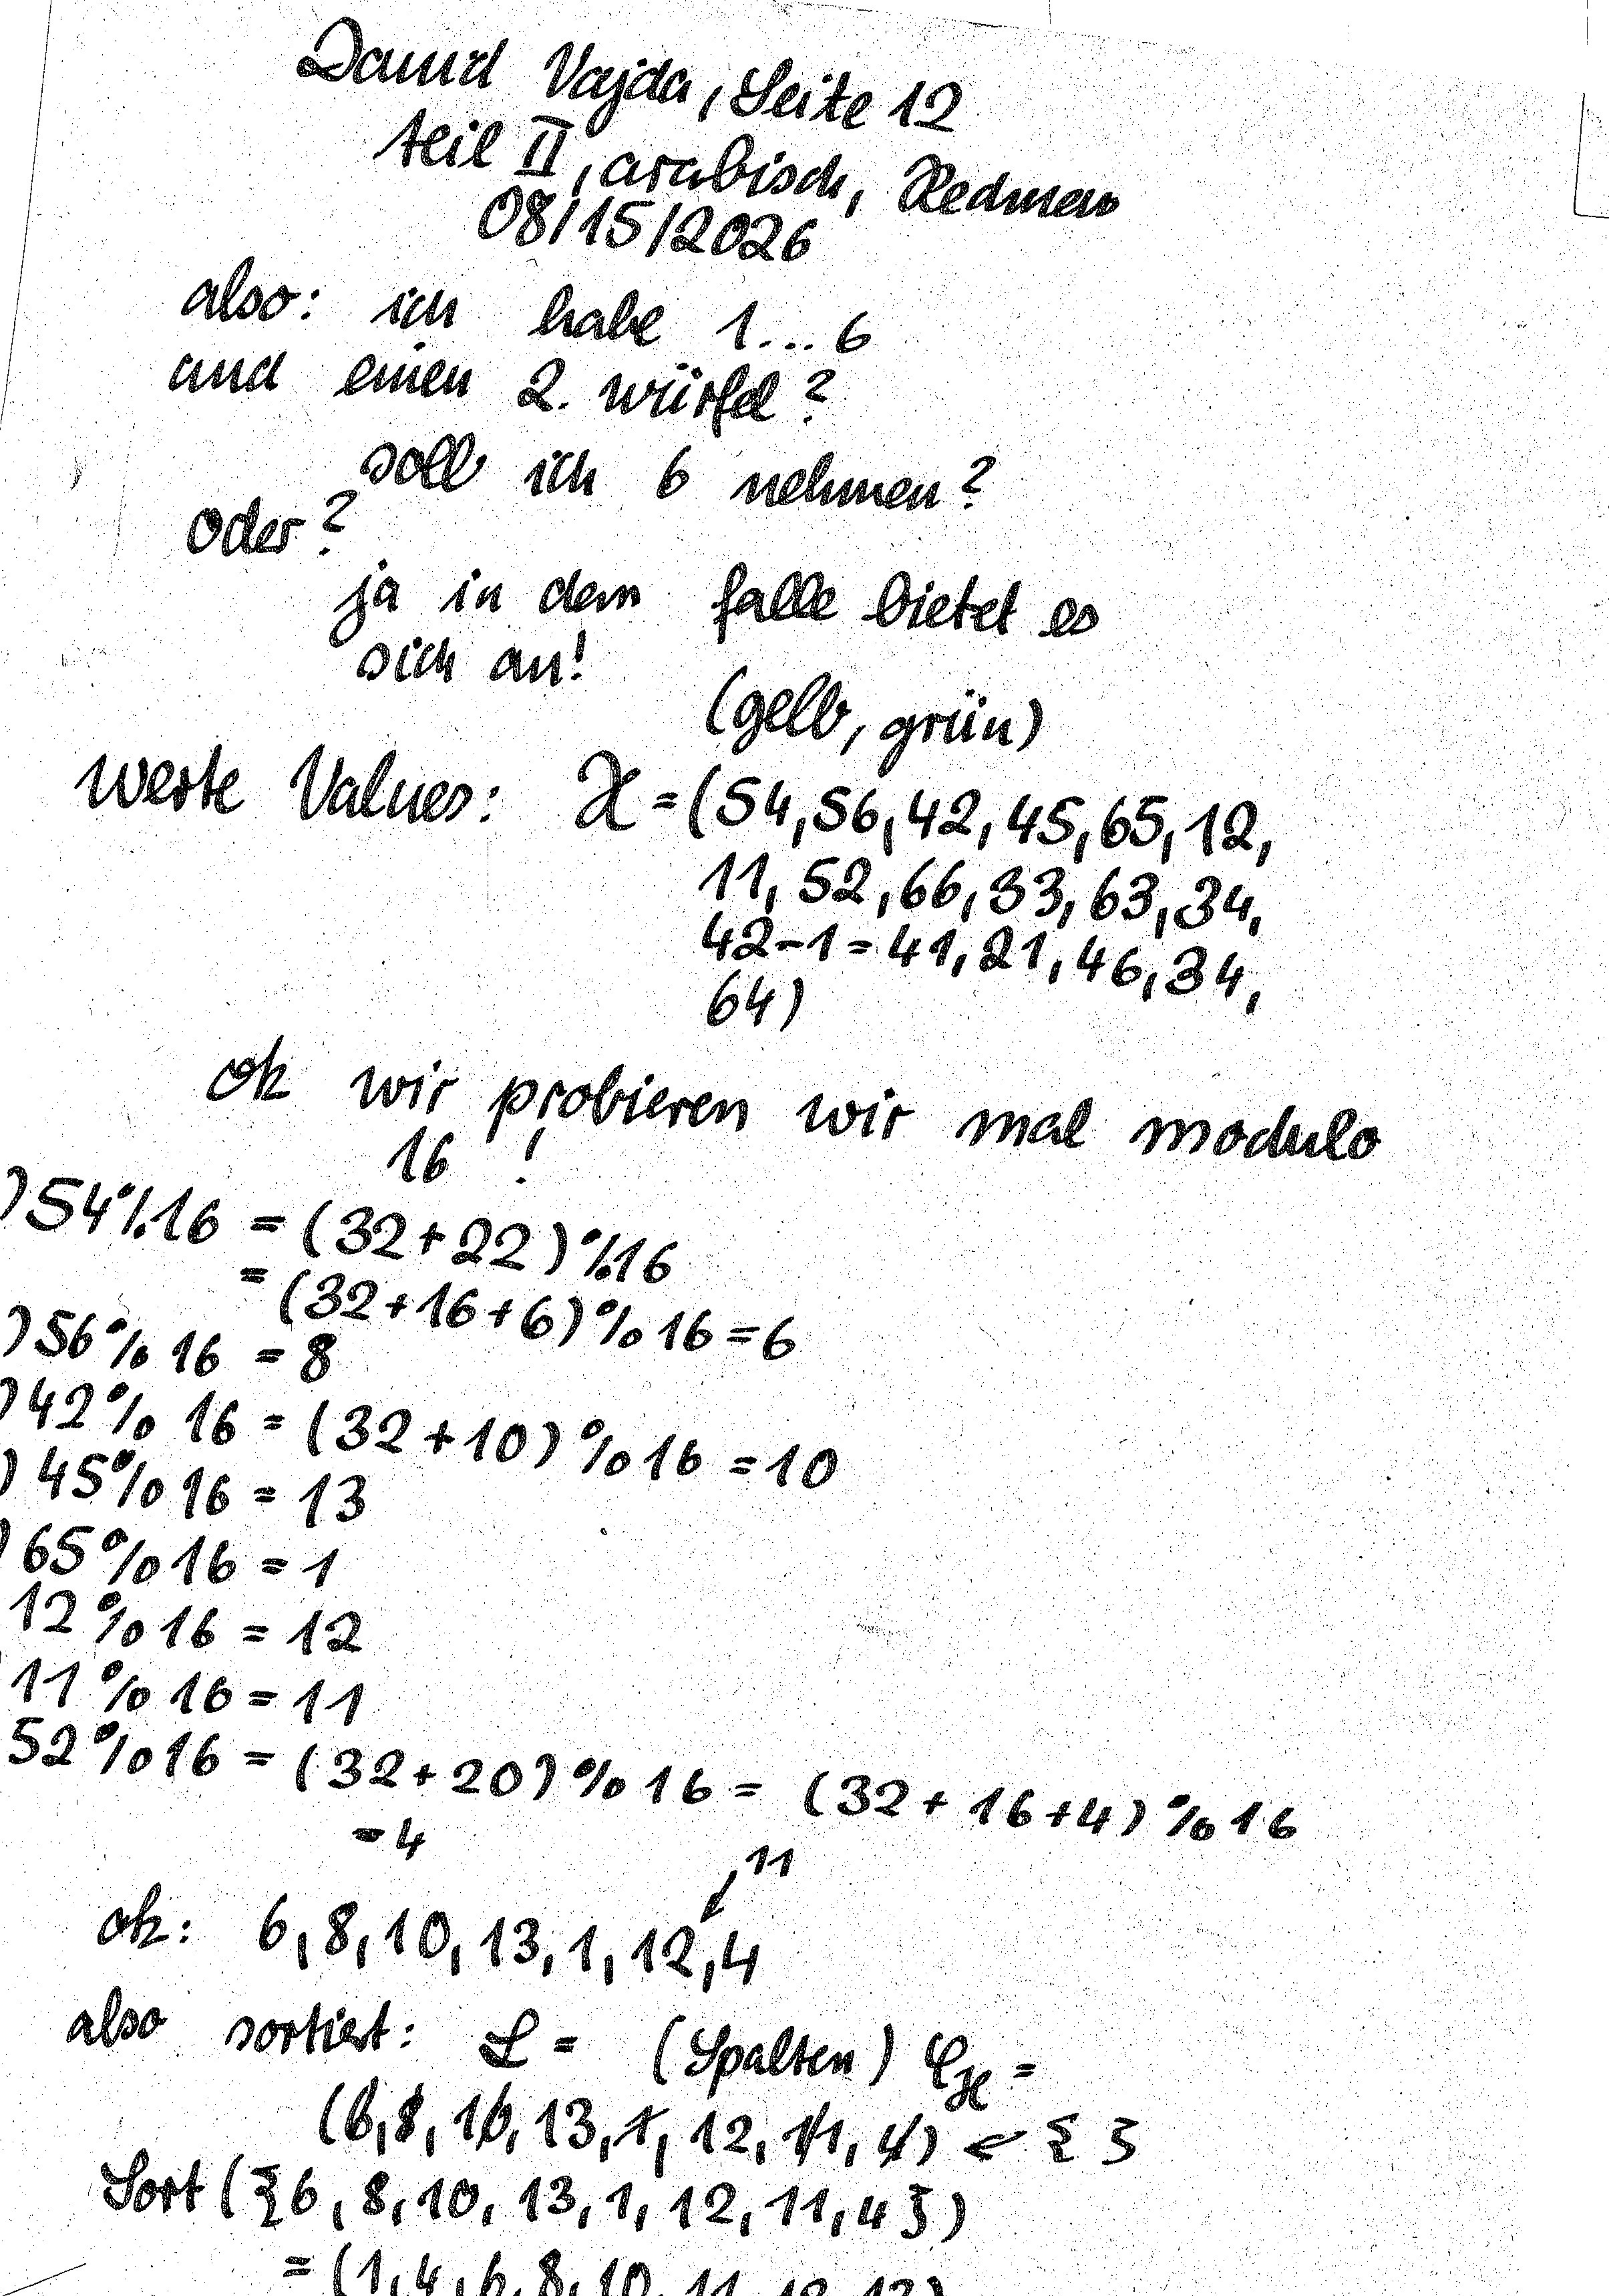 David Vajda, Seite 12
teil II, arabisch, Redmen
08/15/2026
also: ich habe 1...6
und einen 2. würfel?
soll ich 6 nehmen?
oder?
ja in dem falle bietet es
sich an!
(gelb, grün)
Werte Values: X = (54, 56, 42, 45, 65, 12,
11, 52, 66, 33, 63, 34,
42-1=41, 21, 46, 34,
64)
ok wir probieren wir mal modulo
16 !
)54%16 = (32+22)%16
= (32+16+6)%16=6
)56%16 = 8
)42%16 = (32+10)%16 =10
)45%16 = 13
)65%16 = 1
12%16 = 12
11%16 = 11
52%16 = (32+20)%16 = (32+16+4)%16
=4
11
ok: 6,8,10,13,1,12,4
also sortiert: L = (Spalten)
(6,8,10,13,1,12,11,4) ← { }
Sort({6,8,10,13,1,12,11,4})
= (1,4,6,8,10,11,12,13)